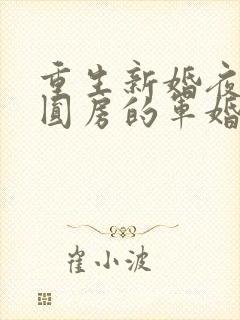 重生新婚夜
圆房的军婚
崔小波